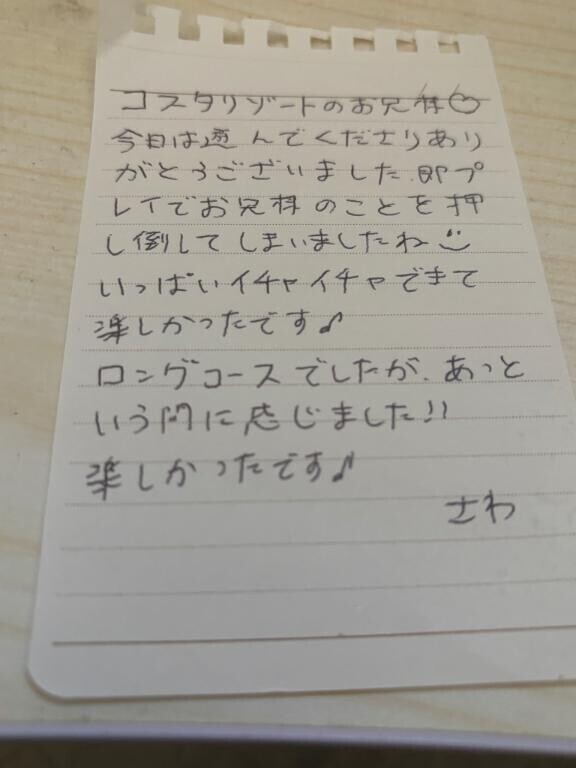 コスタリゾートのお兄様
今日は遊んでくださりあり
がとうございました.即プ
レイでお兄様のことを押
し倒してしまいましたね
いっぱいイチャイチャできて
楽しかったです♪
ロングコースでしたが、あっと
いう間に感じました!!
楽しかったです♪
さわ